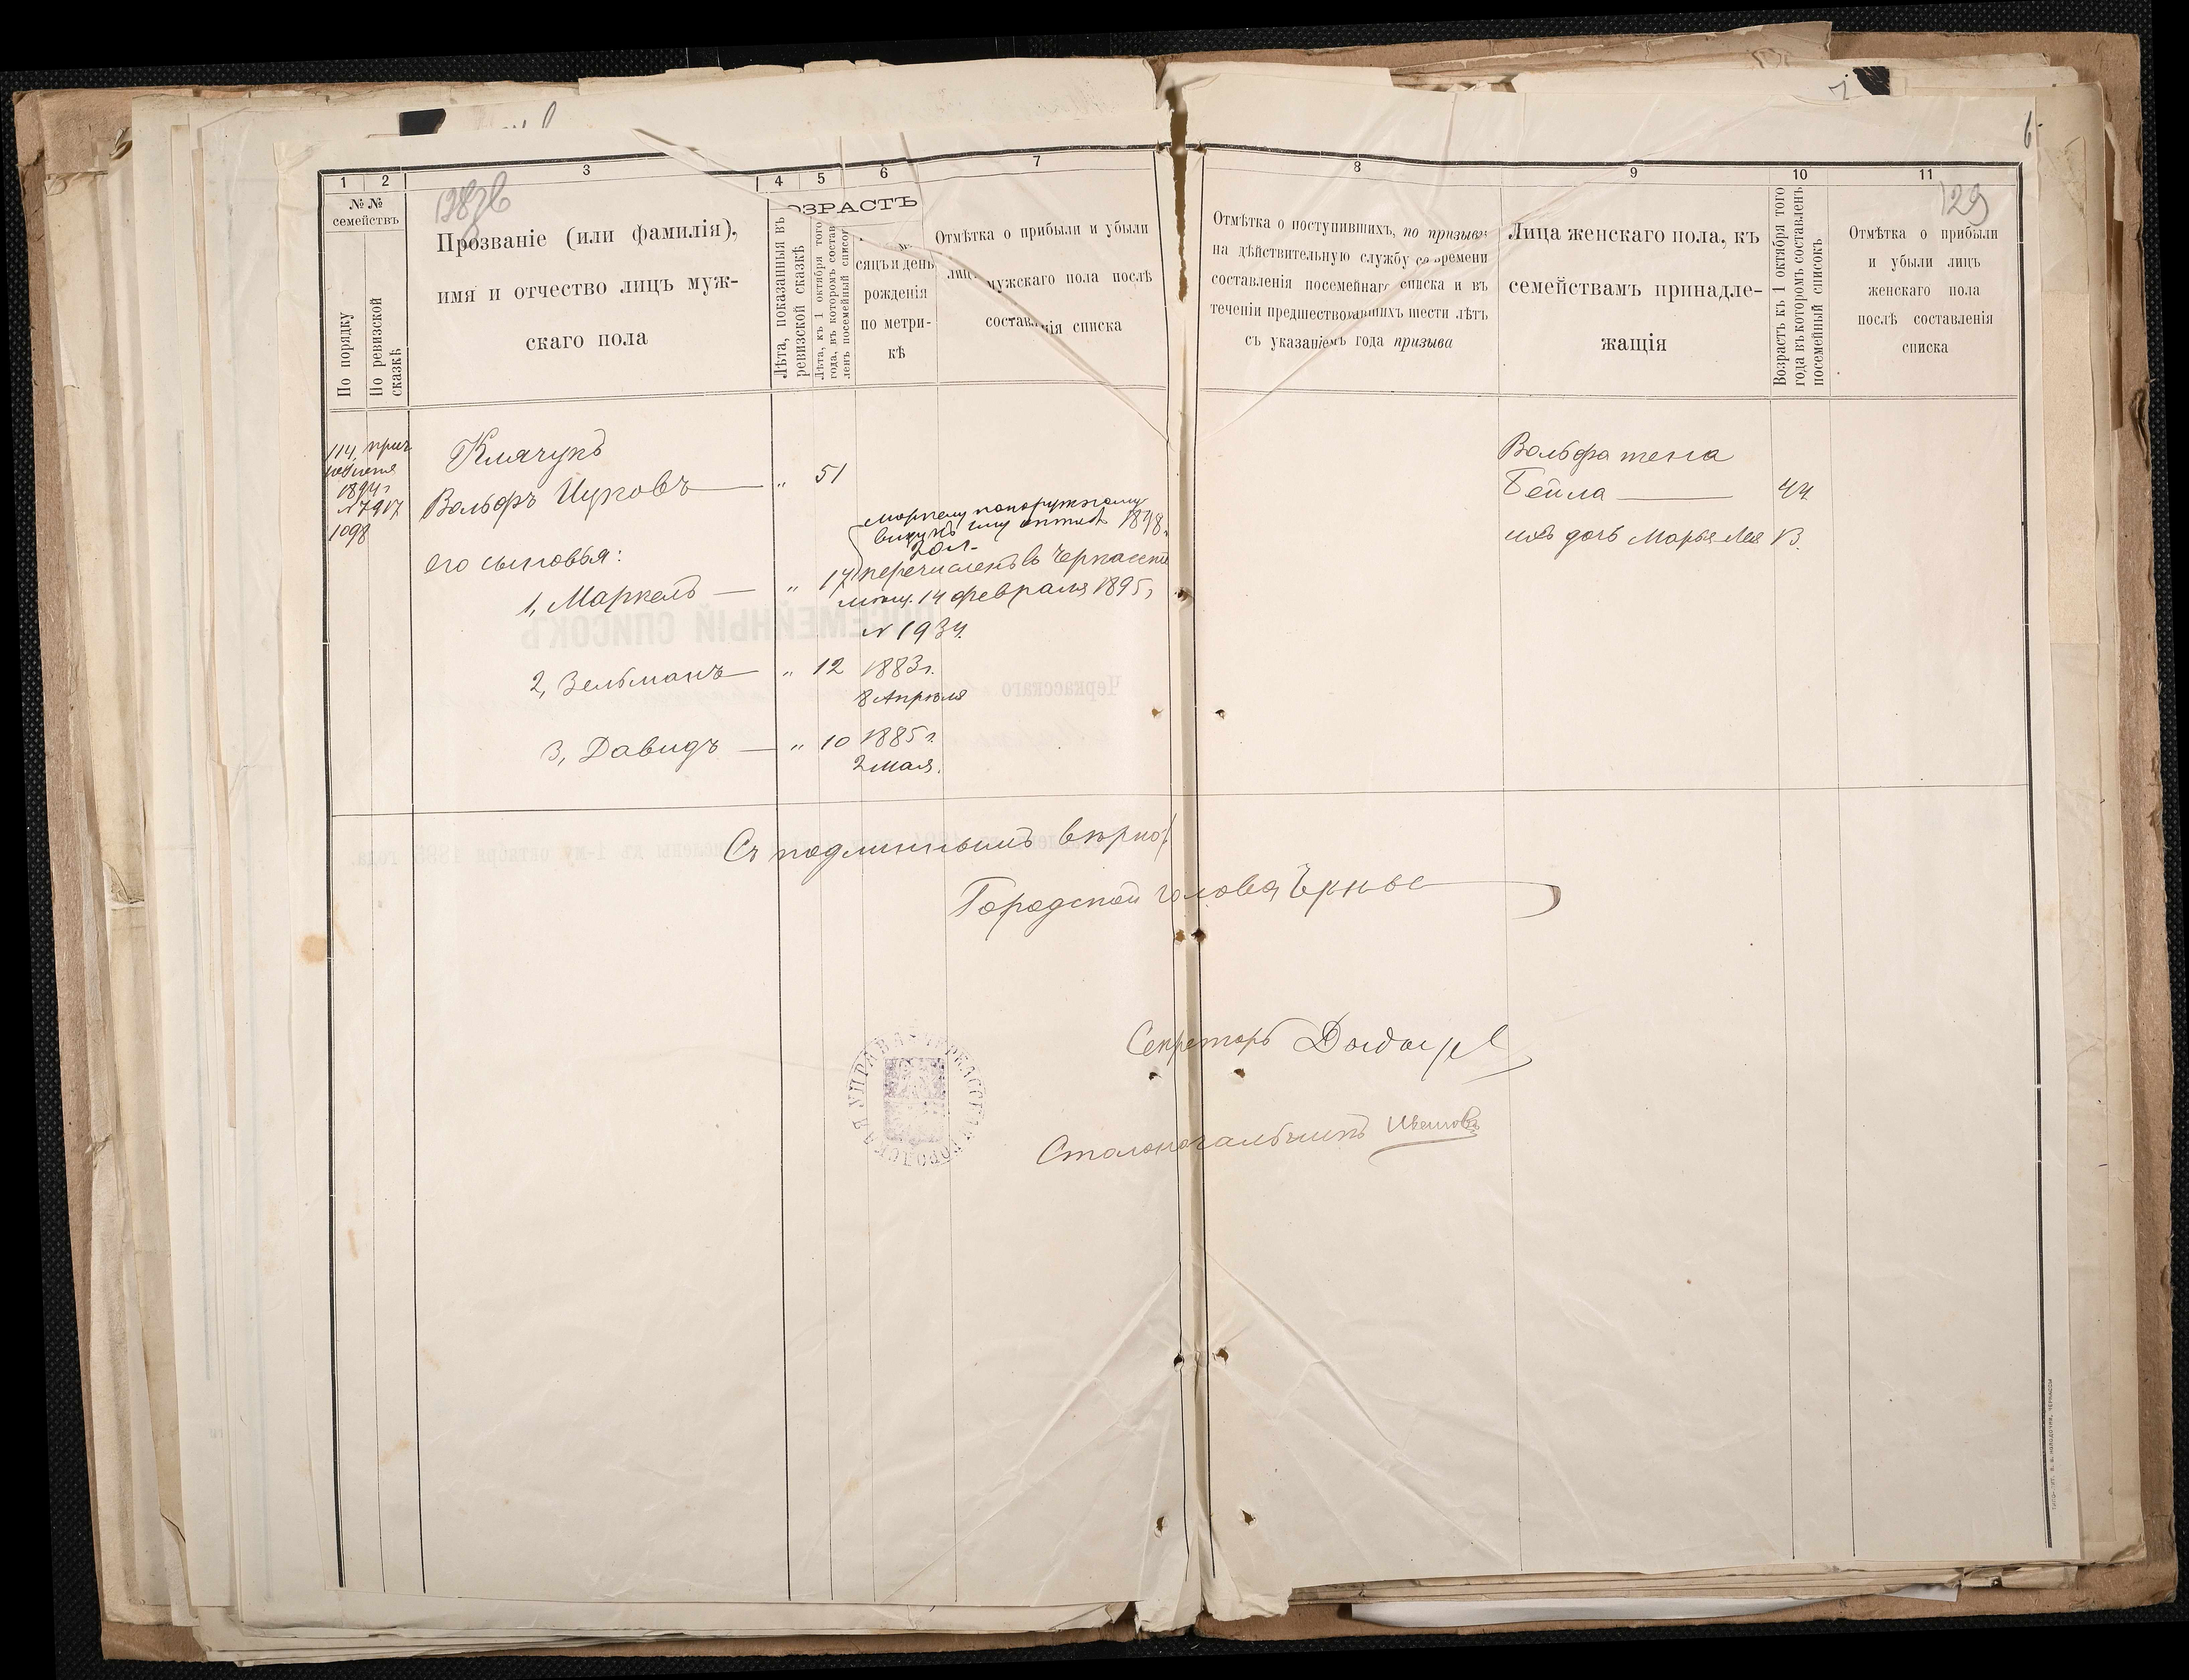 6
1
2
3
4
5
6
7
8
9
10
11
№ №
семействъ
По порядку
По ревизской
сказкѣ
Прозваніе (или фамилія),
имя и отчество лицъ муж-
скаго пола
ОЗРАСТЪ
Лѣта, показанныя въ
ревизской сказкѣ
Лѣта, къ 1 октября того
года, въ которомъ состав
ленъ посемейный списо
сяцъ и день
рожденія
по метри-
кѣ
Отмѣтка о прибыли и убыли
лиц мужскаго пола послѣ
составленія списка
Отмѣтка о поступившихъ, по призыву
на дѣйствительную службу со времени
составленія посемейнаго списка и въ
теченіи предшествовавшихъ шести лѣтъ
съ указаніемъ года призыва
Лица женскаго пола, къ
семействамъ принадле-
жащія
Возрастъ къ 1 октября того
года въ которомъ составленъ
посемейный списокъ
129
Отмѣтка о прибыли
и убыли лицъ
женскаго пола
послѣ составленія
списка
114
1894 г
№ 7917
1098
Клячукъ
Вольфъ Ицковъ — „ 51
его сыновья:
1, Маркель — „ 17
1898
20 л.
перечисленъ в Черкасск
мѣщ. 14 февраля 1895,
№ 1934.
2, Зельманъ — „ 12 1883 г.
8 Апрѣля
3, Давидъ — „ 10 1885 г.
2 мая.
Вольфа жена
Бейла — 44
ихъ дочь Марья Лея 13.
Съ подлиннымъ вѣрно:
Городской голова
Секретарь
Столоначальникъ
ГОРОДСКАЯ УПРАВА ЧЕРКАССК